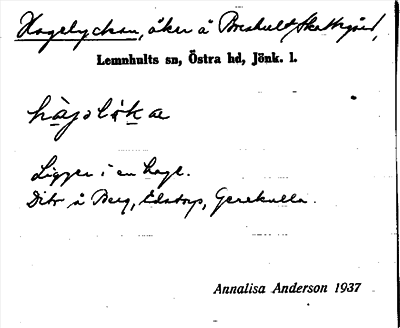 Hagelyckan, åker å Boahult Skattegård,
Lemnhults sn, Östra hd, Jönk. l.
Ligger i en hage.
Dito å Berg, Edstorp, Gerekulla.
Annalisa Anderson 1937